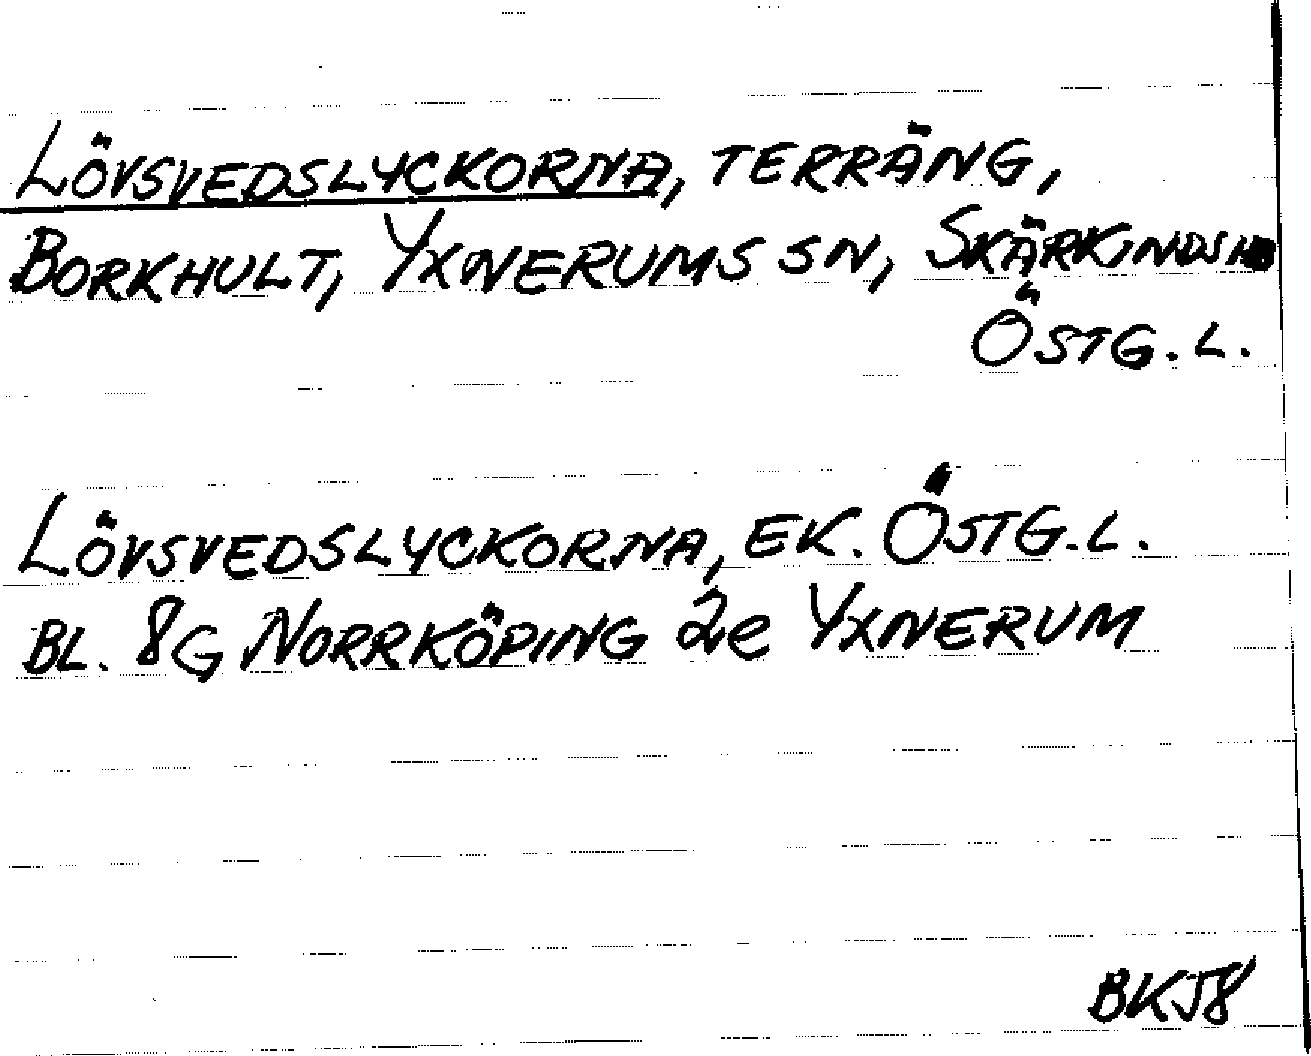 LÖVSVEDSLYCKORNA, TERRÄNG,
BORKHULT, YXNERUMS SN, SKÄRKINDS HD
ÖSTG. L.
LÖVSVEDSLYCKORNA, EK. ÖSTG. L.
BL. 8G NORRKÖPING 2e YXNERUM